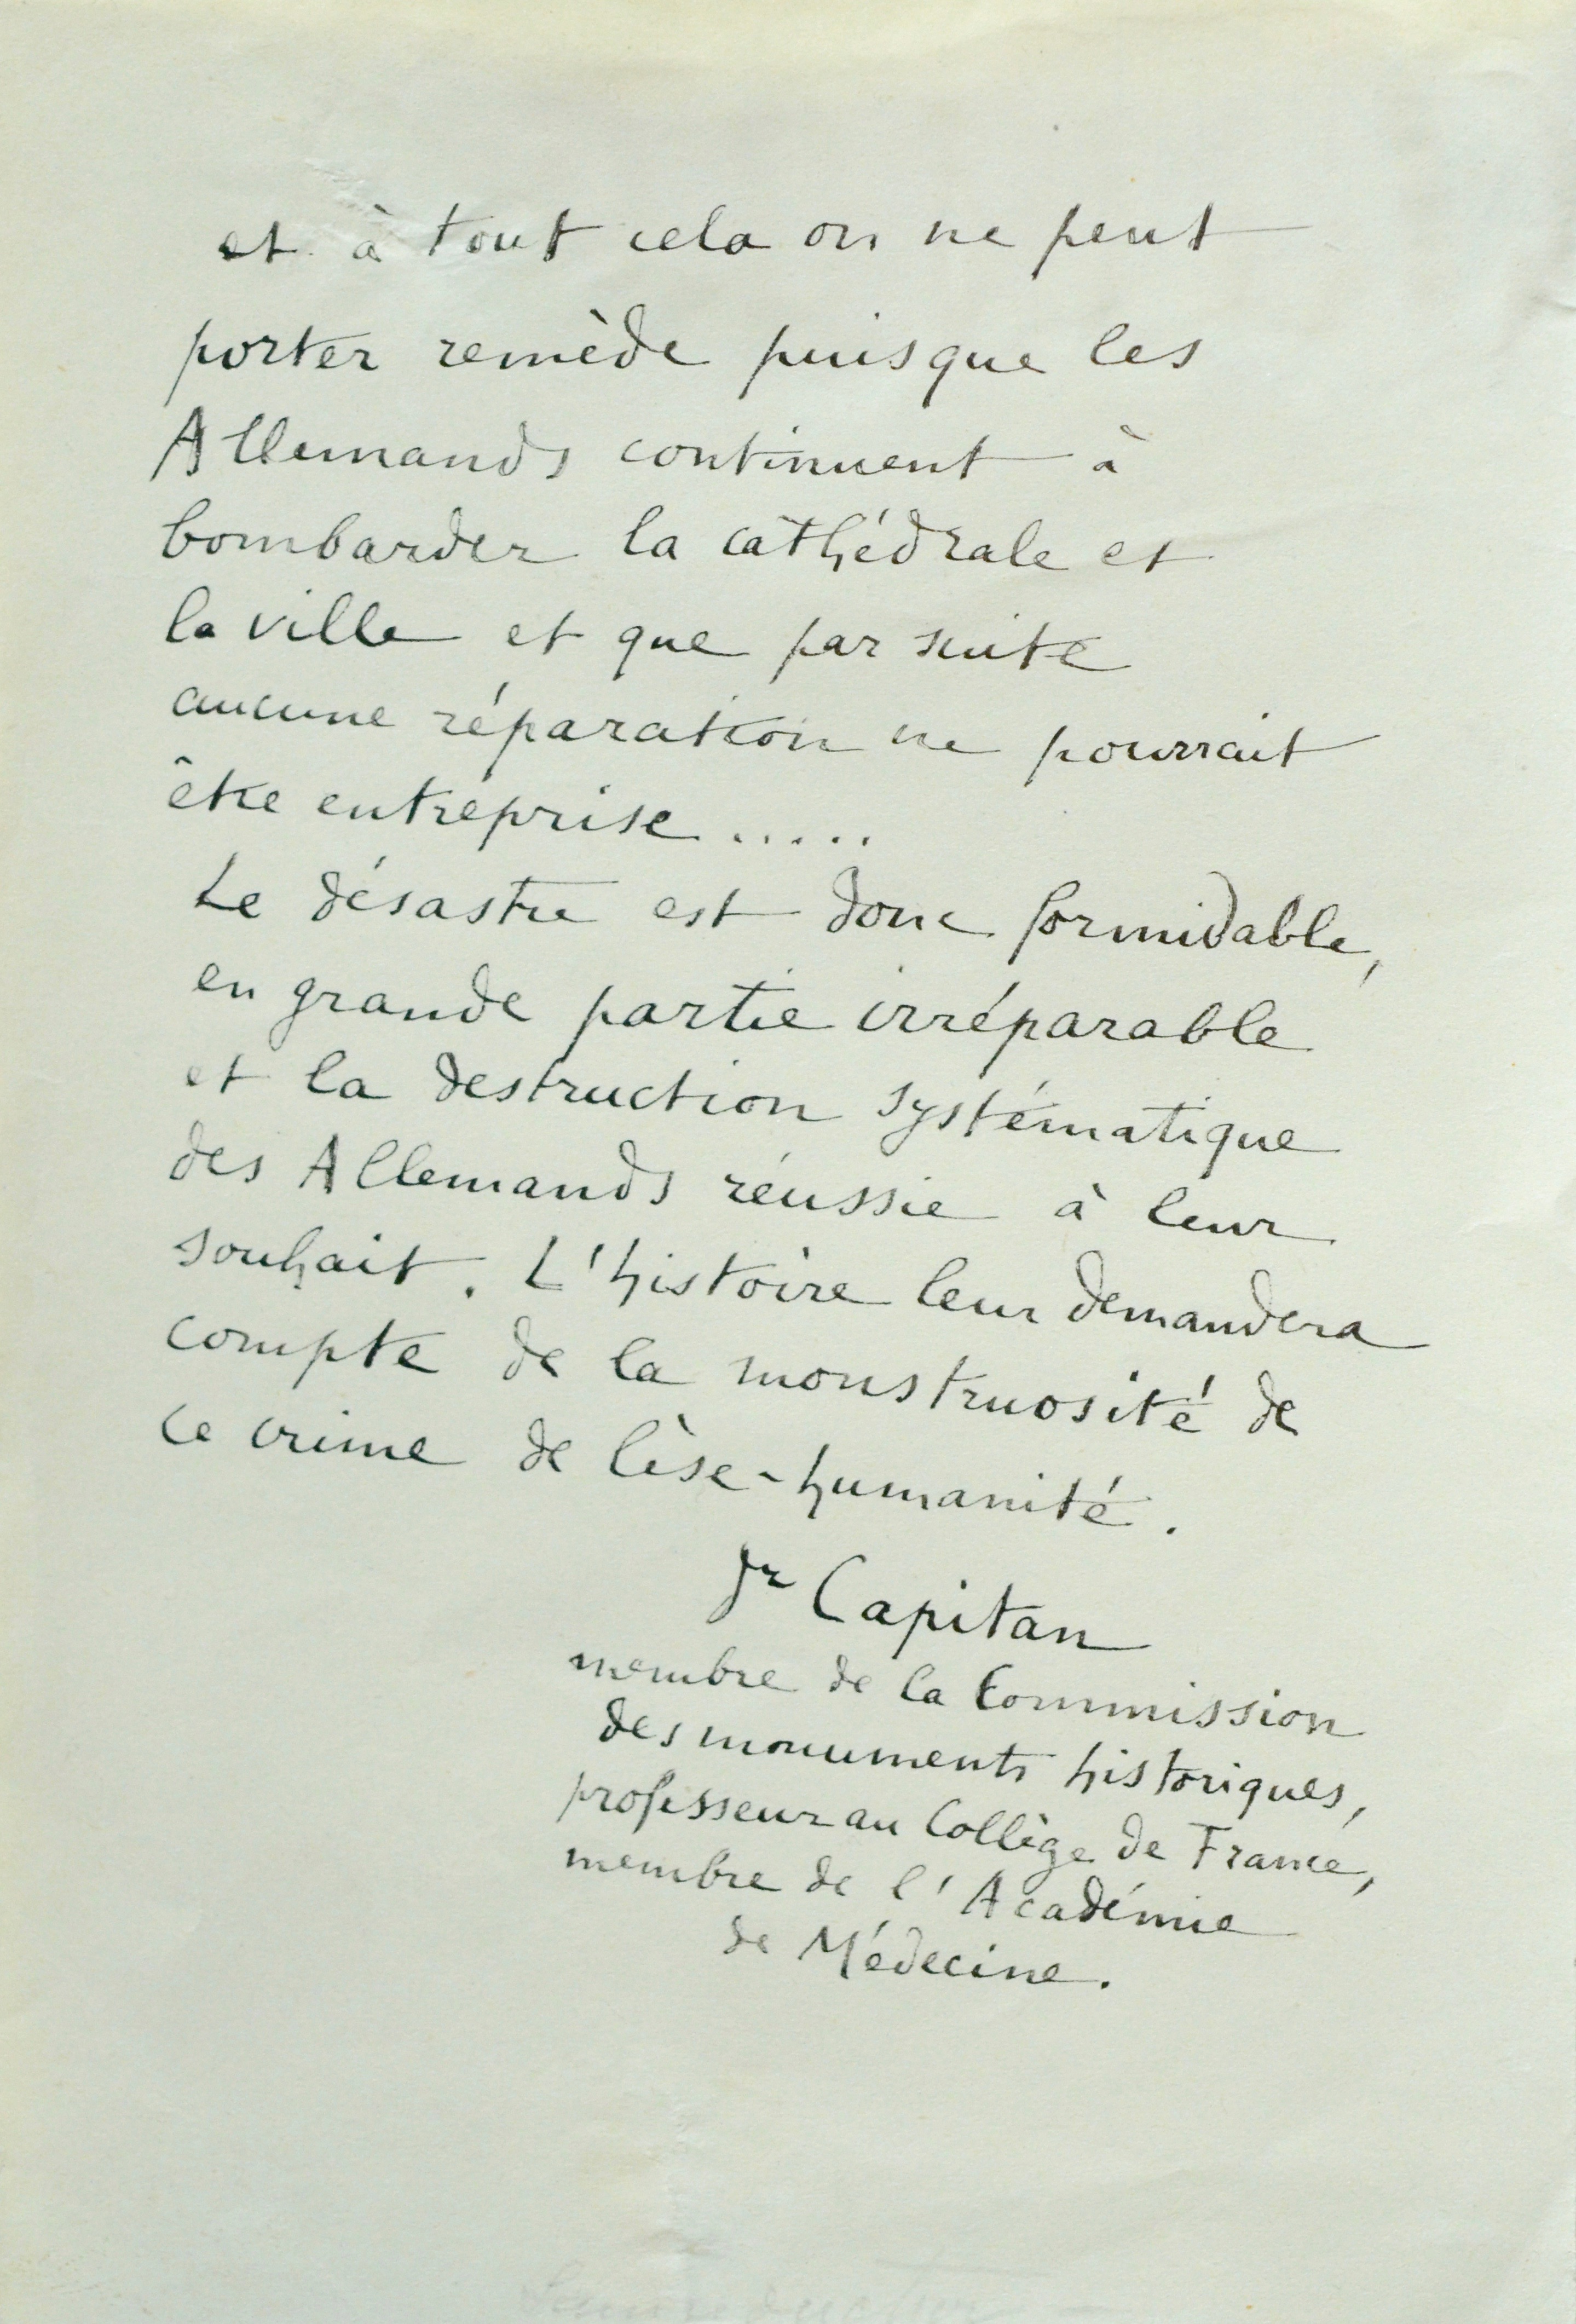 et à tout cela on ne peut
porter remède puisque les
Allemands continuent à
bombarder la cathédrale et
la ville et que par suite
aucune réparation ne pourrait
être entreprise.....
Le désastre est donc formidable,
en grande partie irréparable
et la destruction systématique
des Allemands réussie à leur
souhait. L'histoire leur demandera
compte de la monstruosité de
ce crime de lèse-humanité.
Dr Capitan
membre de la Commission
des monuments historiques,
professeur au Collège de France,
membre de l'Académie
de Médecine.